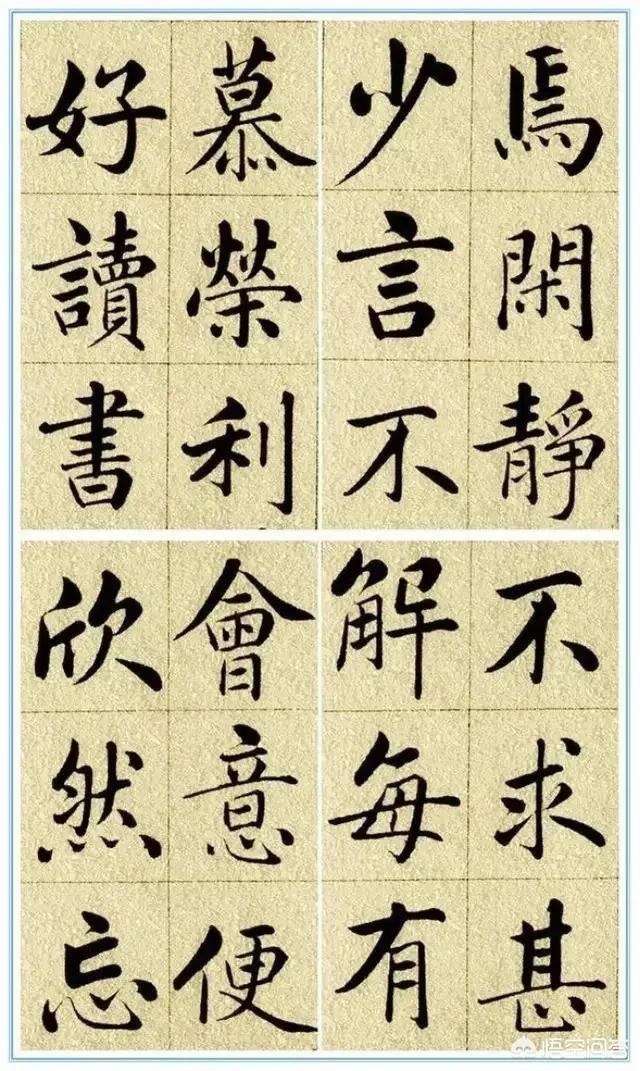 焉閑靜
少言不
慕榮利
好讀書
不求甚
解每有
會意便
欣然忘
悟空问答